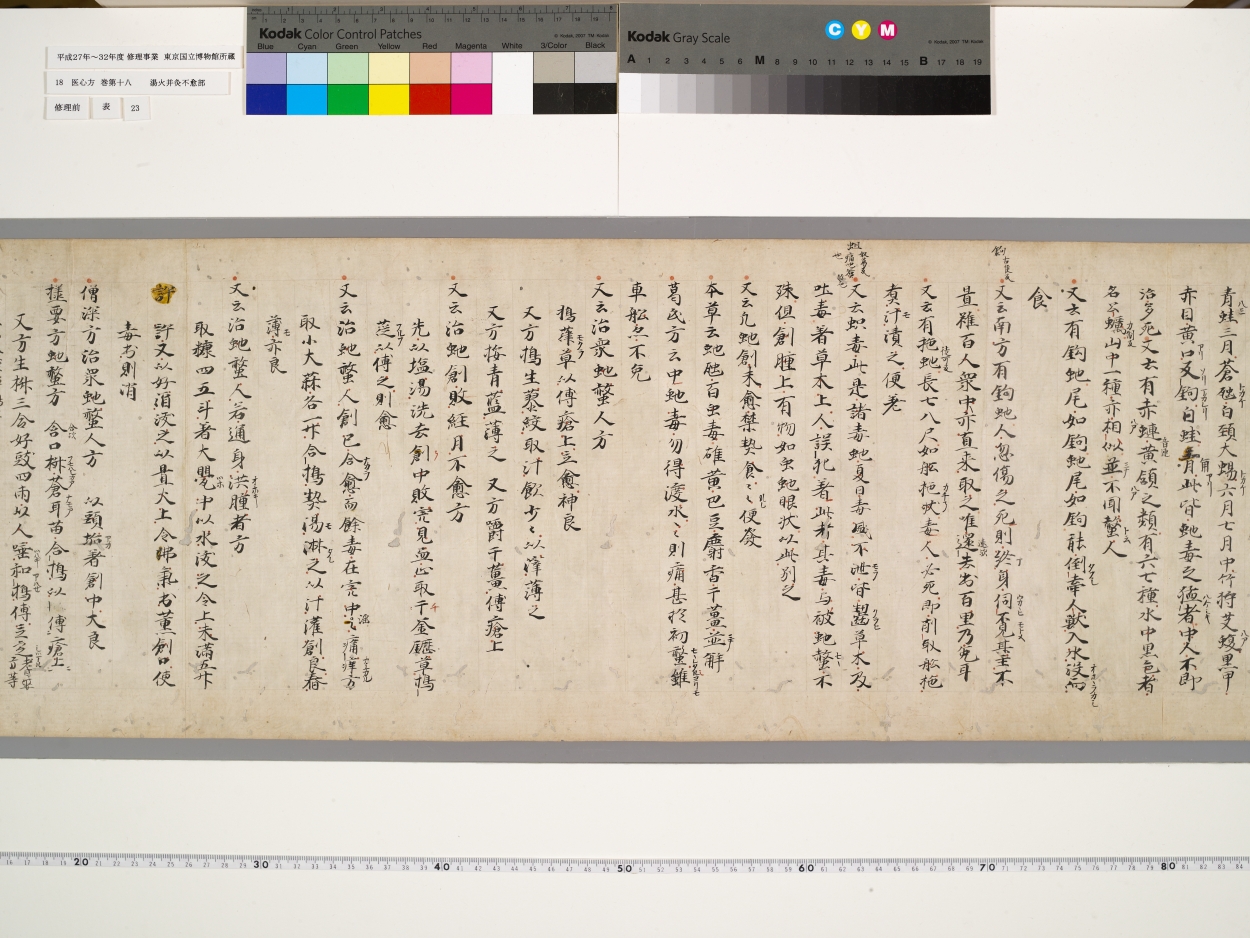 平成27年~32年度 修理事業 東京国立博物館所蔵
18 医心方 巻第十八 湯火并灸不愈部
修理前 表 23
Kodak Color Control Patches
Blue Cyan Green Yellow Red Magenta White 3/Color Black
Kodak Gray Scale
C Y M
A 1 2 3 4 5 6 M 8 9 10 11 12 13 14 15 B 17 18 19
青蛙三月蒼虺白頸大蜴六月七月中竹狩艾蝮黒甲
赤目黄口反鉤白蛙此皆虵毒之猛者中人不即
治多死又云有赤蝰黄頷之類有六七種水中黒色者
山中一種亦相似並不聞螫人
又云有鈎虵尾如鈎能倒牽人獣入水没而
食
又云南方有鈎虵人忽傷之死則終身伺覓其主不
置雖百人衆中亦直来取之唯遠去出百里乃免耳
又云有拖虵長七八尺如舩拖状毒人必死即削取舩拖
煑汁漬之便差
又云蚖毒此是諸毒虵夏日毒盛不泄皆齧草木及
吐毒著草木上人誤犯著此者其毒与被虵螫不
殊但創腫上有物如虫虵眼状以此別之
又云凢虵創未愈禁熱食食便發
本草云虵虺百虫毒雄黄巴豆麝香干薑並解
葛氏方云中虵毒勿得渡水水則痛甚於初螫雖
車舩亦不免
又云治衆虵螫人方
搗薤草以傅瘡上立愈神良
又方搗生蓼絞取汁飲少少以滓薄之
又方挼青藍薄之 又方嚼干薑傅瘡上
又云治虵創敗経月不愈方
先以塩湯洗去創中敗宍見血止取千金鑩草搗
莚以傅之則愈
又云治虵螫人創已合愈而餘毒在宍中痛痒方
取小大蒜各一升合搗熱湯淋之以汁灌創良
薄亦良
又云治虵螫人若通身洪腫者方
取糠四五斗著大甖中以水沒之令上未滿五升
許又以好酒沒之以置火上令沸氣出薫創口使
毒出則消
僧深方治衆虵螫人方 以頭垢著創中大良
樣要方虵螫方 合口椒蒼耳苗合搗以傅瘡上
又方生椒三合好豉四兩以人唾和搗傅立定